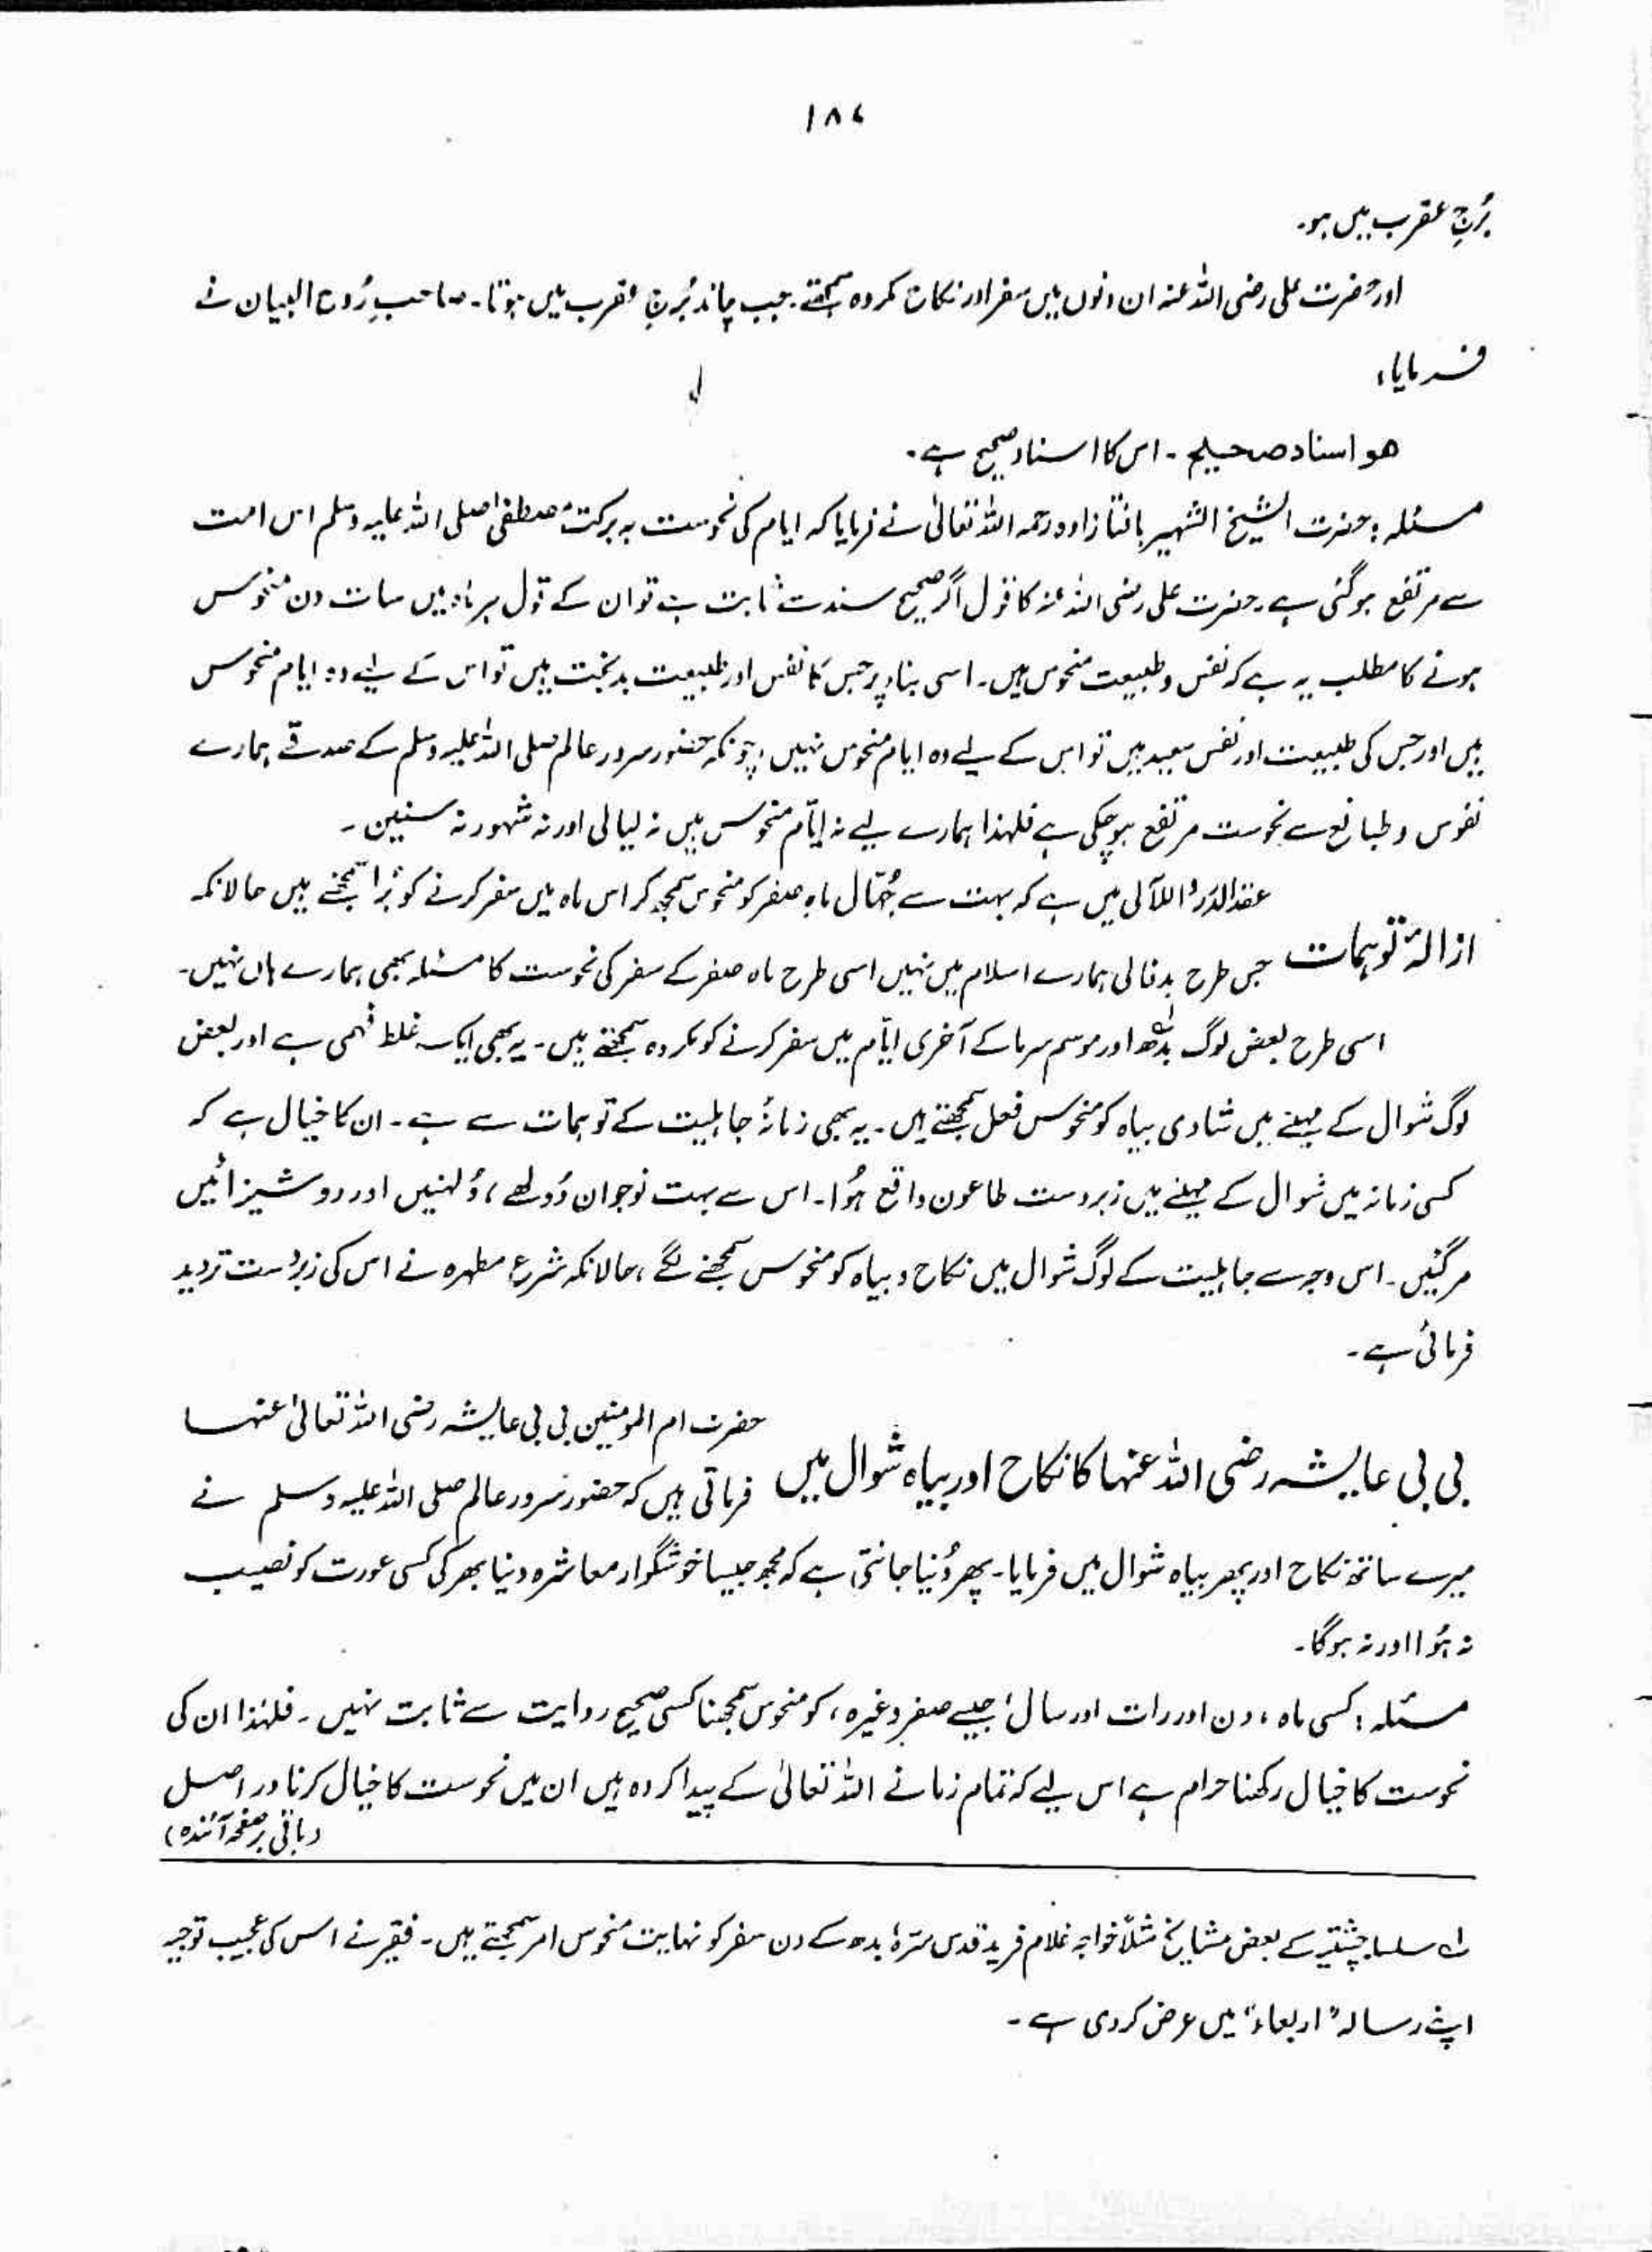 ۱۸۷
بُرجِ عقرب میں ہو۔
اور حضرت علی رضی اللہ عنہ ان دنوں میں سفر اور نکاح مکروہ سمجھتے۔ جب چاند بُرجِ عقرب میں ہوتا۔ صاحبِ رُوح البیان نے
فرمایا:
ھو اسناد صحیح ۔ اس کا اسناد صحیح ہے۔
مسئلہ: حضرت الشیخ الشہیر بافتادہ زادہ رحمہ اللہ تعالیٰ نے فرمایا کہ ایام کی نحوست بہ برکت مصطفیٰ صلی اللہ علیہ وسلم اس امت
سے مرتفع ہو گئی ہے۔ حضرت علی رضی اللہ عنہ کا قول اگر صحیح سند سے ثابت ہے تو ان کے قول ہر ماہ میں سات دن منحوس
ہونے کا مطلب یہ ہے کہ نفس و طبیعت منحوس ہیں۔ اسی بنا پر جس کا نفس اور طبیعت بدبخت ہیں تو اس کے لیے وہ ایام منحوس
ہیں اور جس کی طبیعت اور نفس سعید ہیں تو اس کے لیے وہ ایام منحوس نہیں، چونکہ حضور سرور عالم صلی اللہ علیہ وسلم کے صدقے ہمارے
نفوس و طبائع سے نحوست مرتفع ہو چکی ہے فلہٰذا ہمارے لیے نہ ایّام منحوس ہیں نہ لیالی اور نہ شہور نہ سنین ۔
عقد الدُرر و اللآلی میں ہے کہ بہت سے جُہّال ماہِ صفر کو منحوس سمجھ کر اس ماہ میں سفر کرنے کو بُرا سمجھتے ہیں حالانکہ
ازالۂ توہمات جس طرح بدفالی ہمارے اسلام میں نہیں اسی طرح ماہ صفر کے سفر کی نحوست کا مسئلہ بھی ہمارے ہاں نہیں۔
اسی طرح بعض لوگ بدھ لہ اور موسم سرما کے آخری ایّام میں سفر کرنے کو مکروہ سمجھتے ہیں۔ یہ بھی ایک غلط فہمی ہے اور بعض
لوگ شوال کے مہینے میں شادی بیاہ کو منحوس فعل سمجھتے ہیں۔ یہ بھی زمانۂ جاہلیت کے توہمات سے ہے۔ ان کا خیال ہے کہ
کسی زمانہ میں شوال کے مہینے میں زبردست طاعون واقع ہُوا۔ اس سے بہت نوجوان دُولھے، دُلہنیں اور دوشیزائیں
مر گئیں۔ اس وجہ سے جاہلیت کے لوگ شوال میں نکاح و بیاہ کو منحوس سمجھنے لگے، حالانکہ شرع مطہرہ نے اس کی زبردست تردید
فرمائی ہے۔
حضرت ام المومنین بی بی عایشہ رضی اللہ تعالیٰ عنہا
بی بی عایشہ رضی اللہ عنہا کا نکاح اور بیاہ شوال میں فرماتی ہیں کہ حضور سرور عالم صلی اللہ علیہ وسلم نے
میرے ساتھ نکاح اور پھر بیاہ شوال میں فرمایا۔ پھر دُنیا جانتی ہے کہ مجھ جیسا خوشگوار معاشرہ دنیا بھر کی کسی عورت کو نصیب
نہ ہُوا اور نہ ہوگا۔
مسئلہ: کسی ماہ، دن اور رات اور سال، جیسے صفر وغیرہ، کو منحوس سمجھنا کسی صحیح روایت سے ثابت نہیں۔ فلہٰذا ان کی
نحوست کا خیال رکھنا حرام ہے اس لیے کہ تمام زمانے اللہ تعالیٰ کے پیدا کردہ ہیں ان میں نحوست کا خیال کرنا در اصل
(باقی بر صفحہ آئندہ)
لہ سلسلہ چشتیہ کے بعض مشایخ مثلاً خواجہ غلام فرید قدس سترہٗ بدھ کے دن سفر کو نہایت منحوس امر سمجھتے ہیں۔ فقیر نے اس کی عجیب توجیہ
اپنے رسالہ "اربعاء" میں عرض کر دی ہے۔